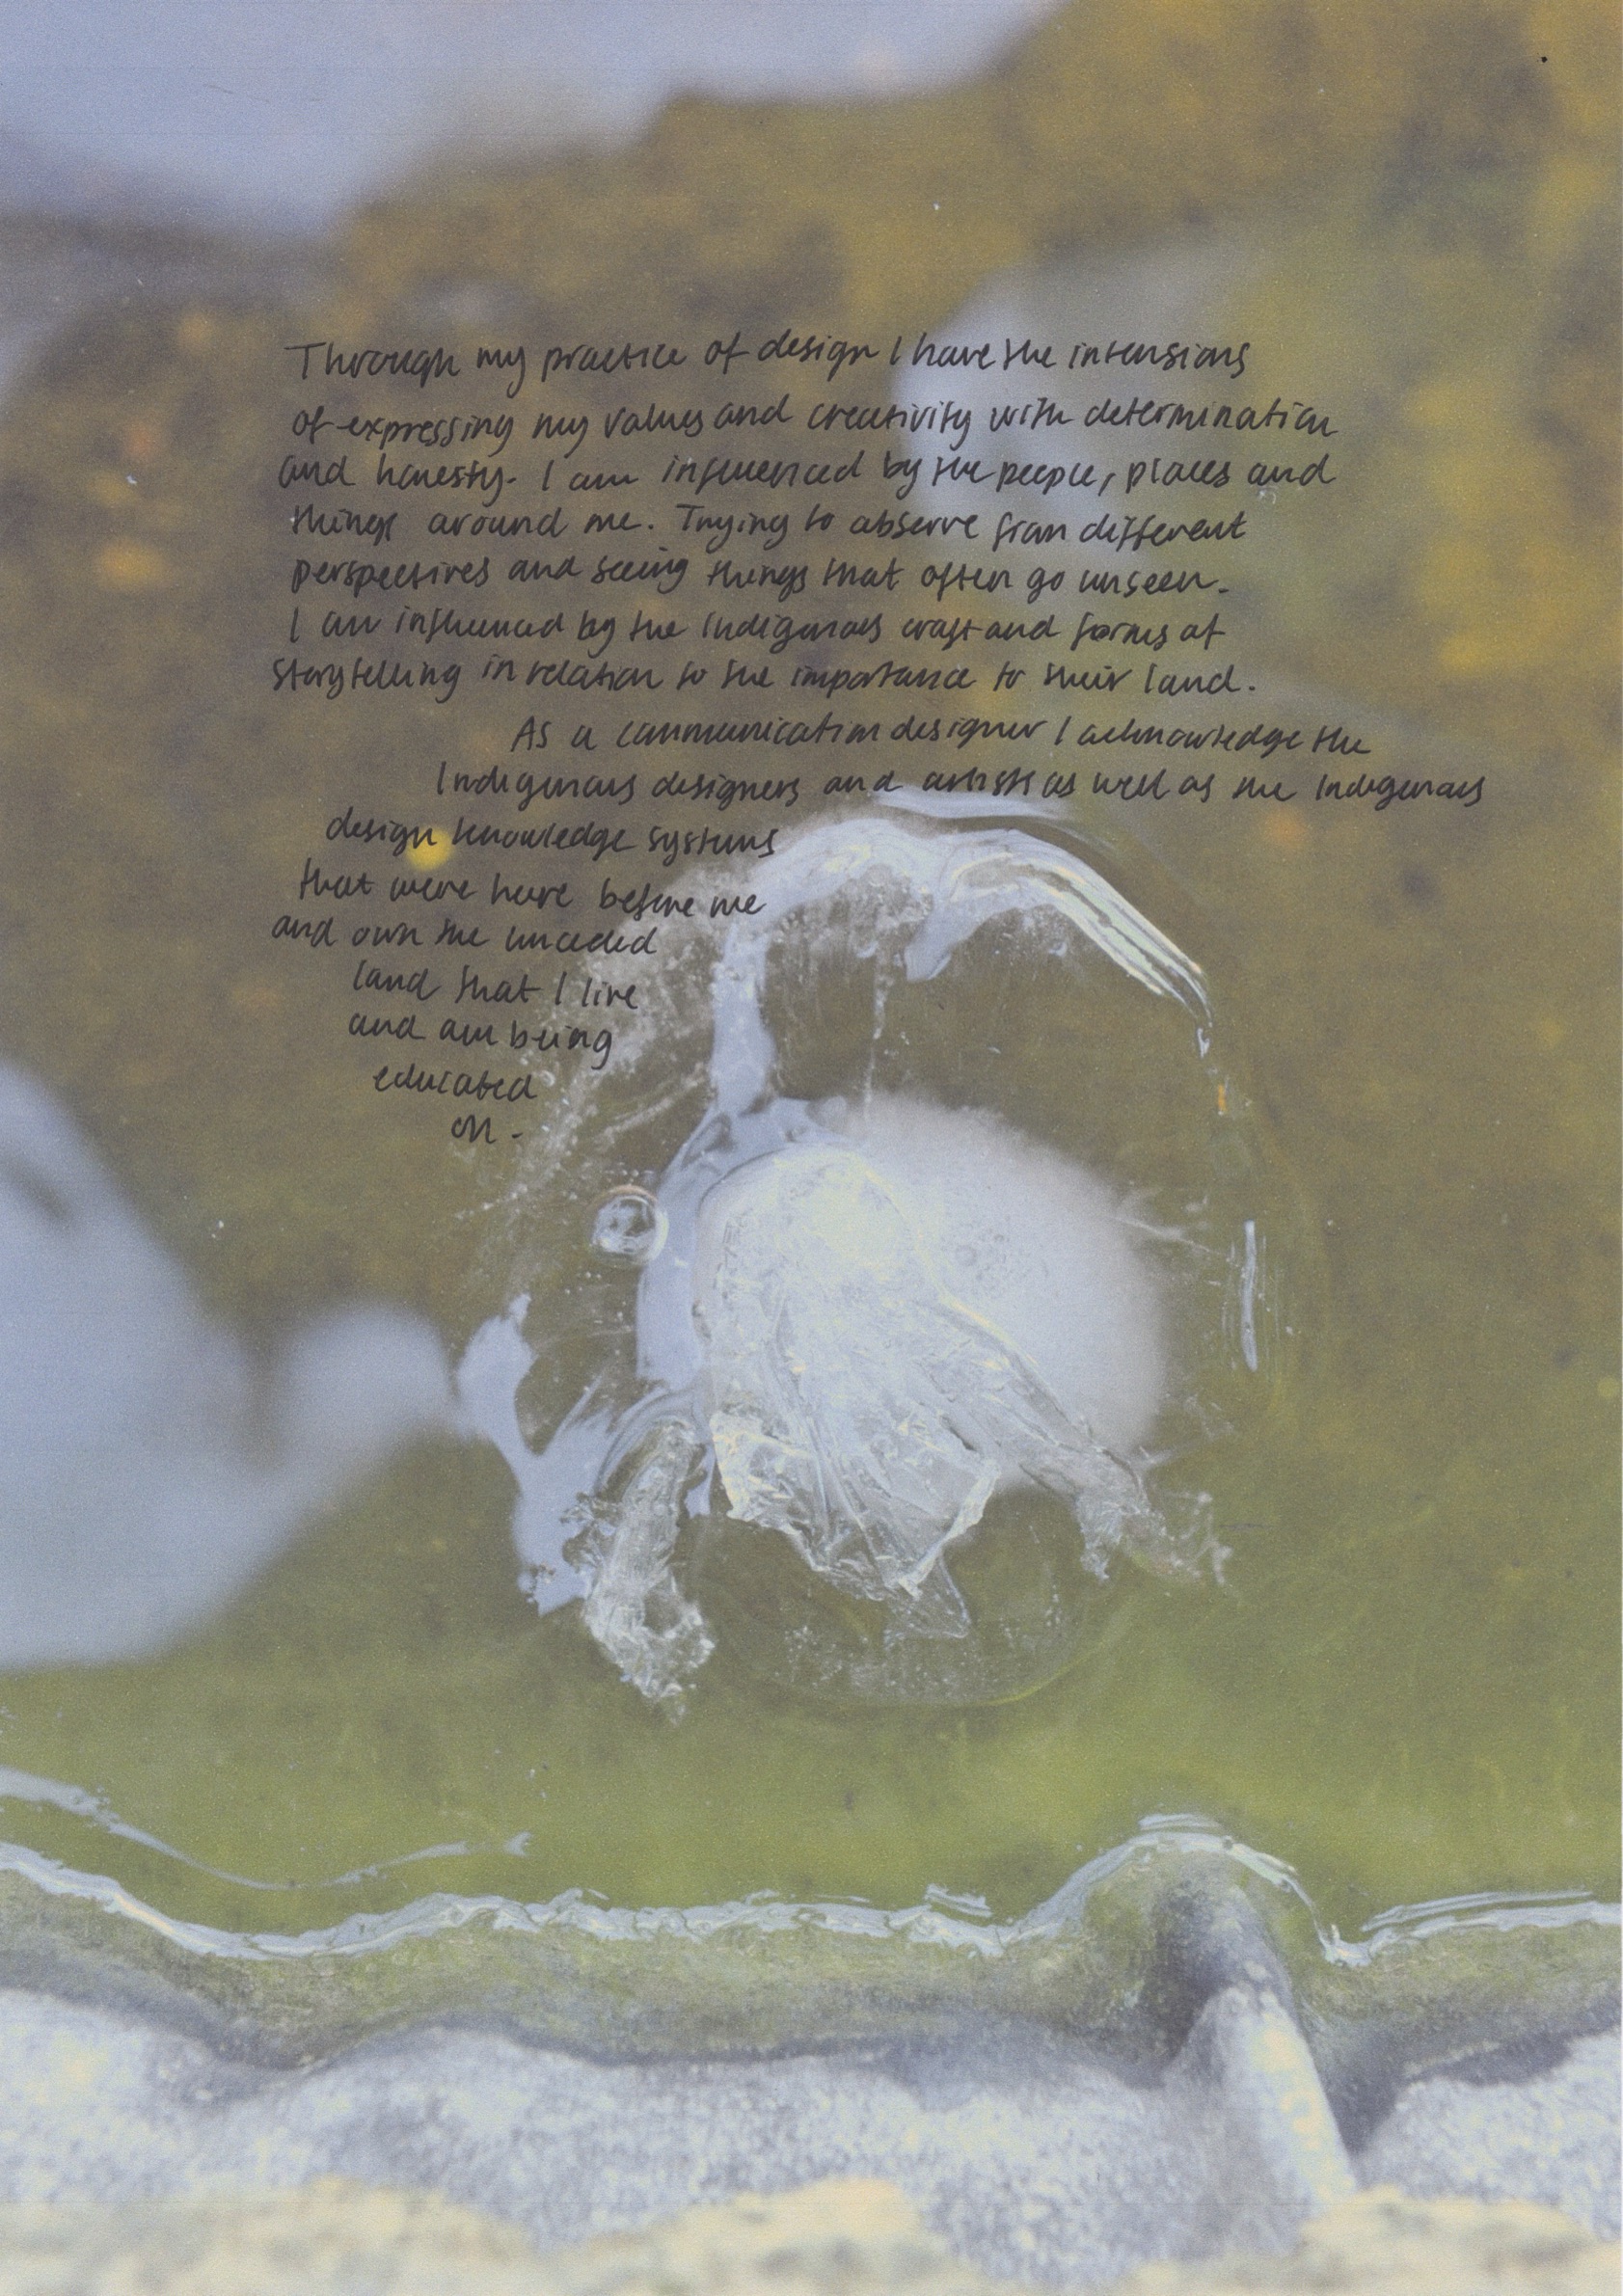 Through my practice of design I have the intensions
of expressing my values and creativity with determination
and honesty. I am influenced by the people, places and
things around me. Trying to observe from different
perspectives and seeing things that often go unseen.
I am influenced by the Indigenous craft and forms of
storytelling in relation to the importance to their land.
As a communication designer I acknowledge the
Indigenous designers and artists as well as the Indigenous
design knowledge systems
that were here before me
and own the unceded
land that I live
and am being
educated
on.